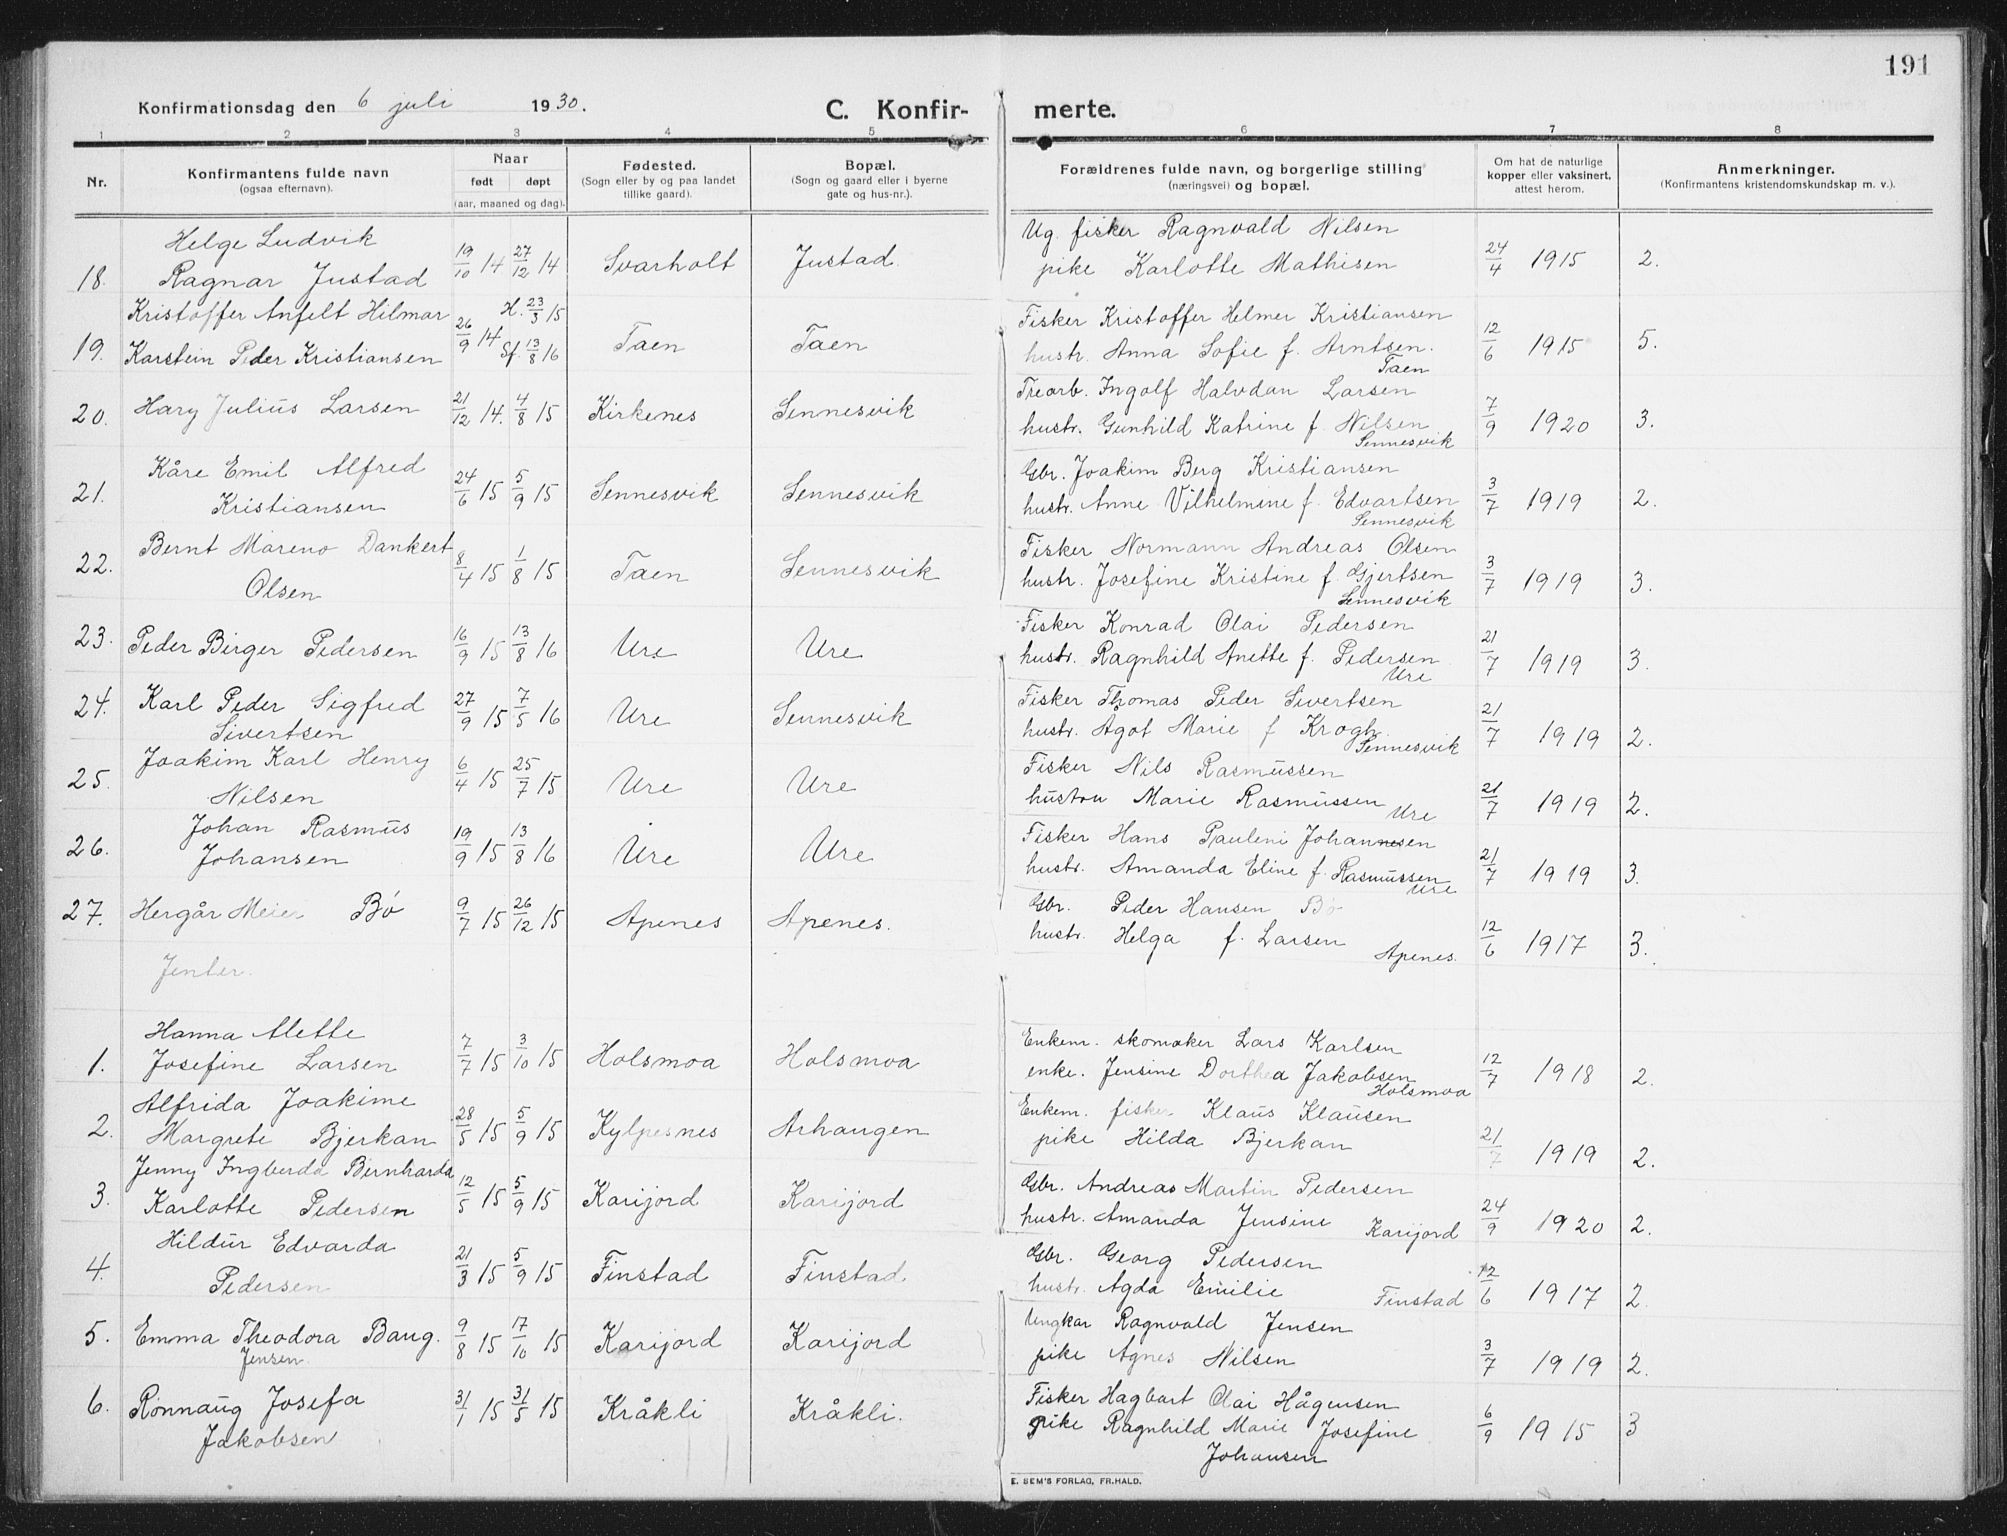 191
Konfirmationsdag den 6 juli 1930.
C. Konfirmerte.
1 2 3 4 5 6 7 8
Nr.
Konfirmantens fulde navn
(ogsaa efternavn).
Naar
født døpt
(aar, maaned og dag).
Fødested.
(Sogn eller by og paa landet
tillike gaard).
Bopæl.
(Sogn og gaard eller i byerne
gate og hus-nr.).
Forældrenes fulde navn, og borgerlige stilling
(næringsvei) og bopæl.
Om hat de naturlige
kopper eller vaksinert,
attest herom.
Anmerkninger.
(Konfirmantens kristendomskundskap m. v.).
Helge Ludvik Ug. fisker Ragnvald Nilsen
18. Ragnar Justad 19/10 14 27/12 14 Svarholt Justad. pike Karlotte Mathisen 24/4 1915 2.
Kristoffer Anfelt Hilmar H. 23/3 15 Fisker Kristoffer Helmer Kristiansen
19. Karstein Peder Kristiansen 26/9 14 Sf. 13/8 16 Taen Taen hustr. Anna Sofie f. Arntsen. 12/6 1915 5.
Taen
Trearb. Ingolf Halvdan Larsen
20. Hary Julius Larsen 21/12 14. 4/8 15 Kirkenes Sennesvik hustr. Gunhild Katrine f. Nilsen 7/9 1920 3.
Sennesvik
Kåre Emil Alfred Gbr. Joakim Berg Kristiansen
21. Kristiansen 24/6 15 5/9 15 Sennesvik Sennesvik hustr. Anne Vilhelmine f. Edvartsen 3/7 1919 2.
Sennesvik
Bernt Mareno Dankert Fisker Normann Andreas Olsen
22. Olsen 8/4 15 1/8 15 Taen Sennesvik hustr. Josefine Kristine f. Gjertsen 3/7 1919 3.
Sennesvik
Fisker Konrad Olai Pedersen
23. Peder Birger Pedersen 16/9 15 13/8 16 Ure Ure hustr. Ragnhild Anette f. Pedersen 21/7 1919 3.
Ure
24. Karl Peder Sigfred Fisker Thomas Peder Sivertsen
Sivertsen 27/9 15 7/5 16 Ure Sennesvik hustr. Agot Marie f Krogh. 21/7 1919 2.
Sennesvik
Joakim Karl Henry Fisker Nils Rasmussen
25. Nilsen 6/4 15 25/7 15 Ure Ure hustru Marie Rasmussen 21/7 1919 2.
Ure
Johan Rasmus Fisker Hans Pauleni Johannesen
26. Johansen 19/9 15 13/8 16 Ure Ure hustr. Amanda Eline f. Rasmussen 21/7 1919 3.
Ure
27. Hergår Meier Bö 9/7 15 26/12 15 Apenes Apenes. Gbr. Peder Hansen Bö
hustr. Helga f. Larsen 12/6 1917 3.
Apenes.
Jenter.
Hanna Alette Enkem. skomaker Lars Karlsen
1. Josefine Larsen 7/7 15 3/10 15 Holsmoa Holsmoa enke. Jensine Dorthea Jakobsen 12/7 1918 2.
Holsmoa
Alfrida Joakime Enkem. fisker Klaus Klausen
2. Margrete Bjerkan 28/5 15 5/9 15 Kylpesnes Arhaugen pike Hilda Bjerkan 21/7 1919 2.
Jenny Ingberda Bernharda Gbr. Andreas Martin Pedersen
3. Karlotte Pedersen 12/5 15 5/9 15 Karijord Karijord hustr. Amanda Jensine Karijord 24/9 1920 2.
Hildur Edvarda Gbr. Georg Pedersen
4. Pedersen 21/3 15 5/9 15 Finstad Finstad hustr. Agda Emilie Finstad 12/6 1917 2.
Ungkar Ragnvald Jensen
5. Emma Theodora Baug. 9/8 15 17/10 15 Karijord Karijord pike Agnes Nilsen 3/7 1919 2.
Jensen
Fisker Hagbart Olai Hågensen
6. Rönnaug Josefa 31/1 15 31/5 15 Kråkli Kråkli. pike Ragnhild Marie Josefine 6/9 1915 3
Jakobsen Johansen
E. SEM'S FORLAG, FR.HALD.